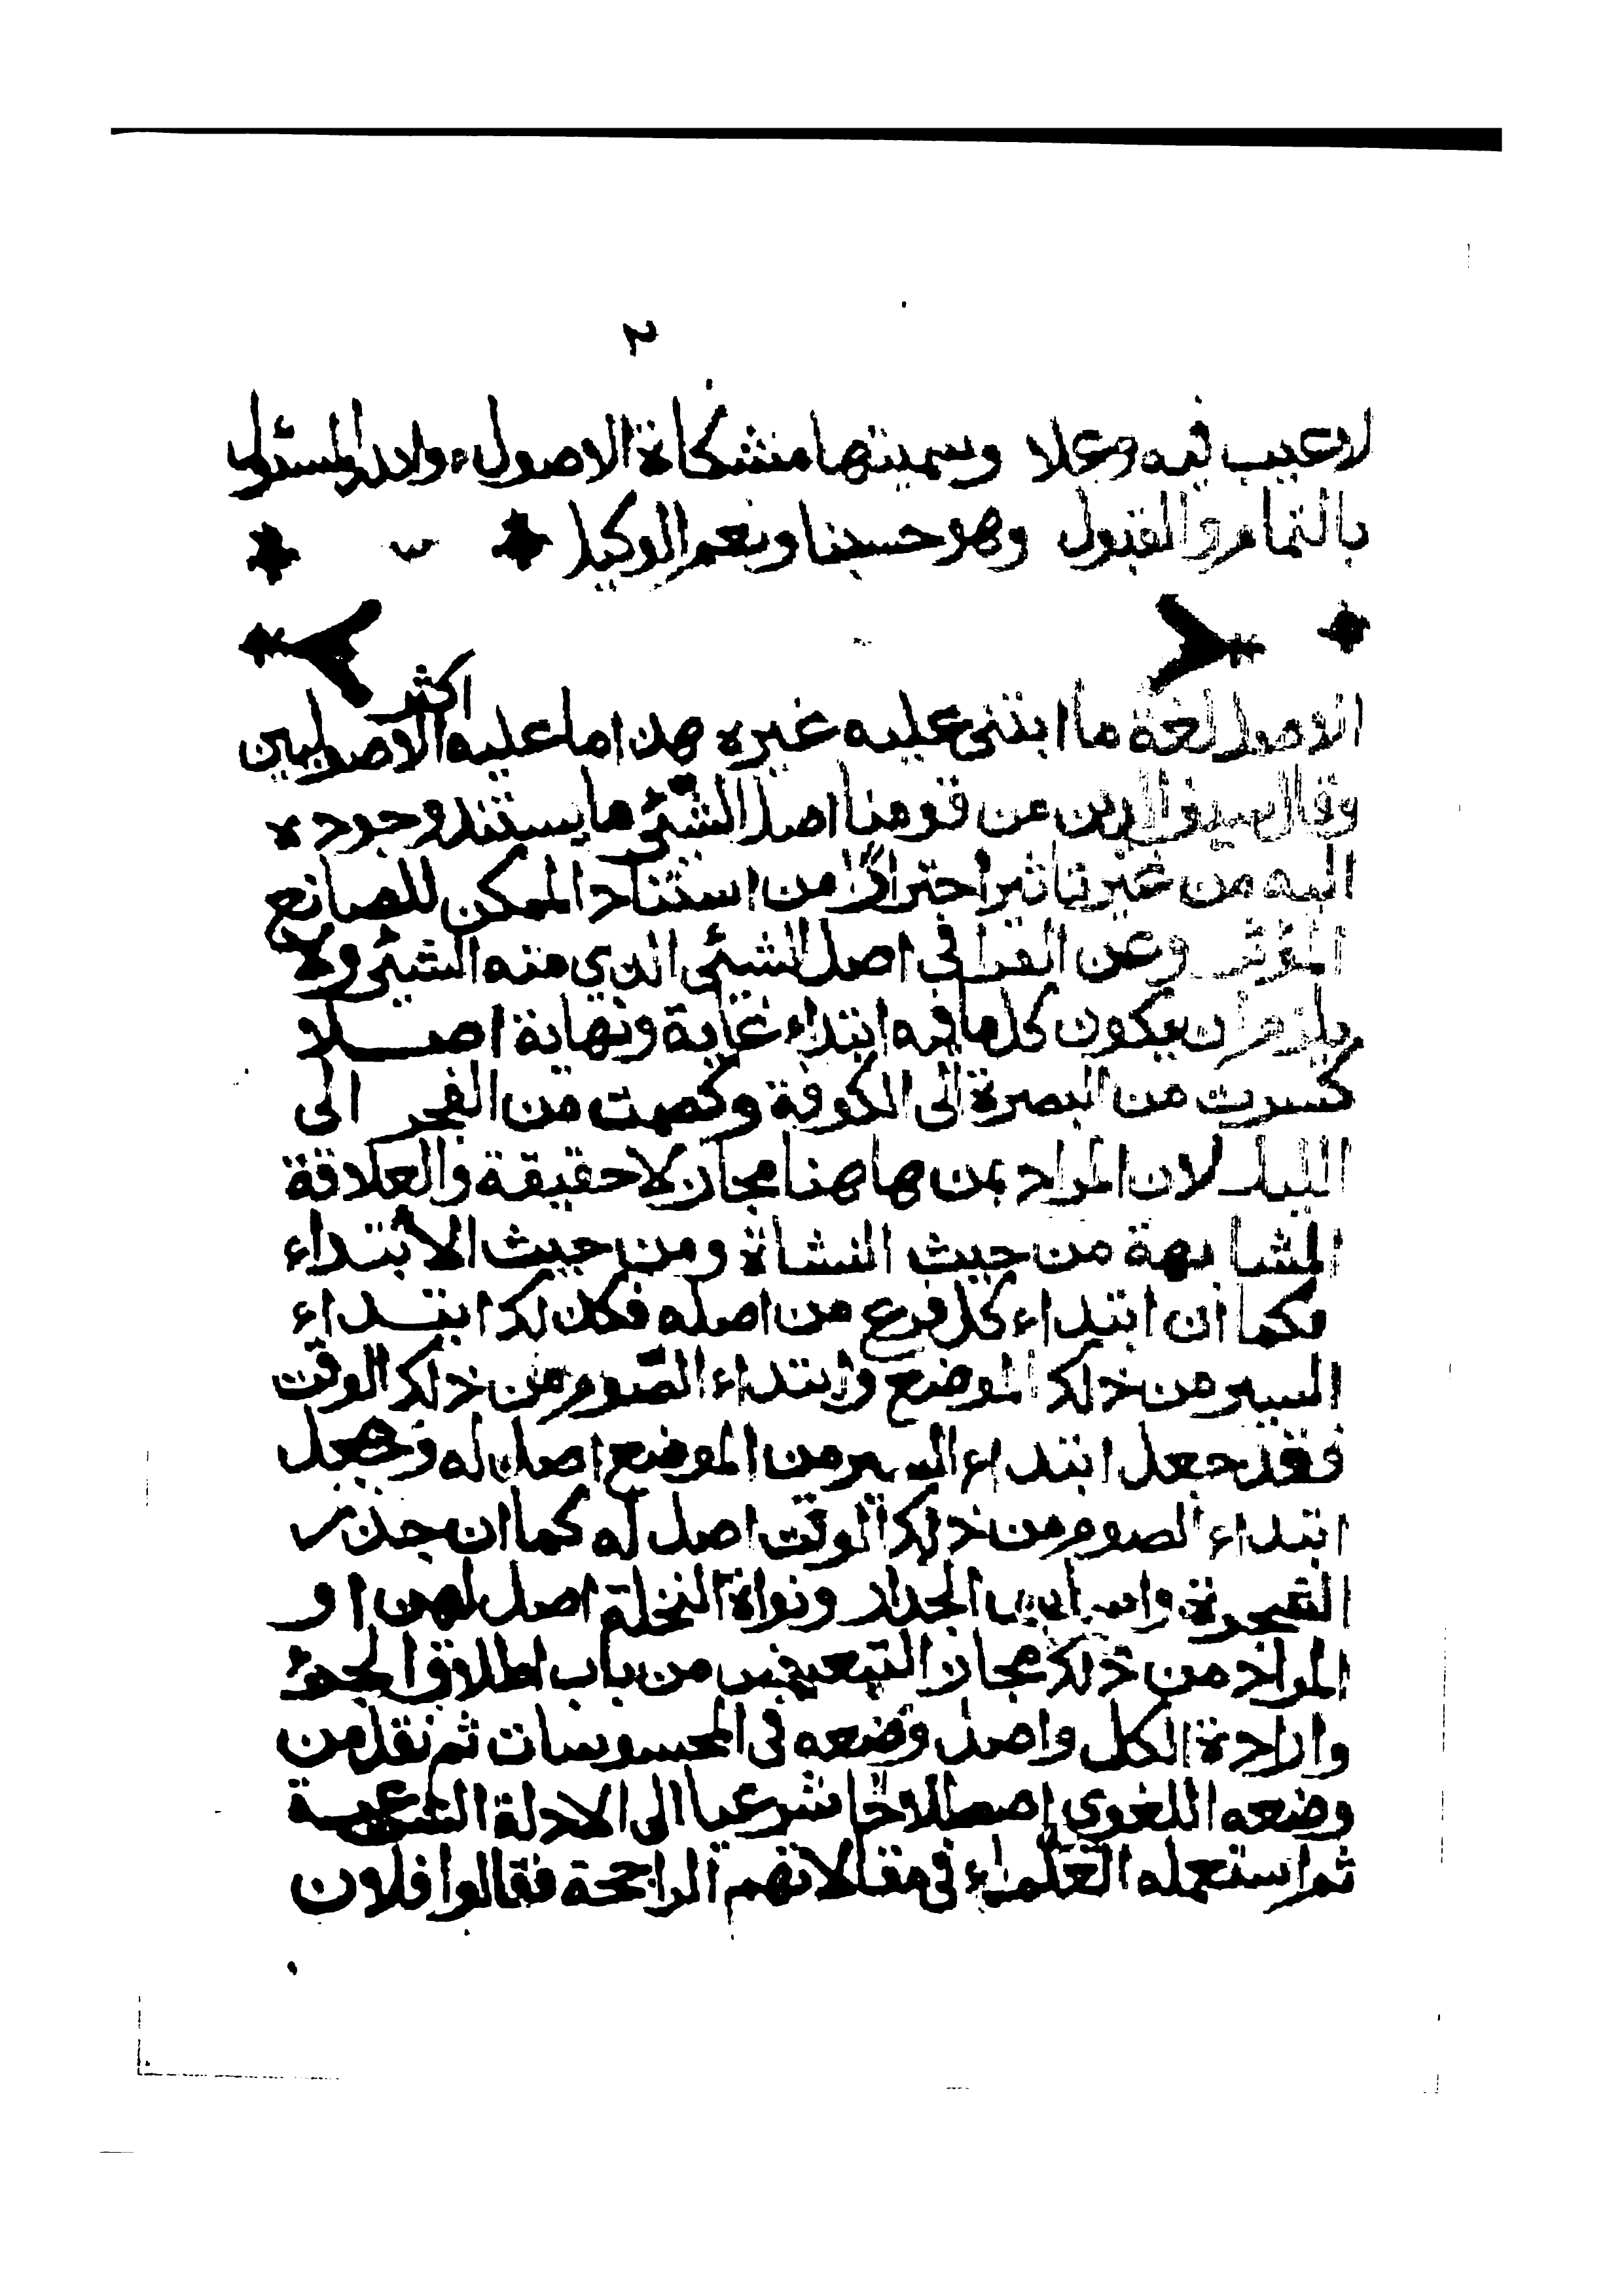 ٣
لا عيب فيه وعلا وسميتها مشكاة الاصول والله المسئول
بالتمام والقبول وهو حسبنا ونعم الوكيل
الاصل لغة ما ابتنى عليه غيره هذا ما عليه اكثر الاصوليين
وقال سيف الدين من قومنا اصل الشئ ما يستند وجوده
اليه من غير تاثير احترازا من استناد الممكن للصانع
المؤثر وعن القرافي اصل الشئ الذي منه الشئ ولا
يلزم ان يكون كل ما فيه ابتداء غاية ونهاية اصلا
كسرت من البصرة الى الكوفة وكصمت من الفجر الى
الليل لان المراد بمن هاهنا مجاز لا حقيقة والعلاقة
المشابهة من حيث النشاة ومن حيث الابتداء
فكما ان ابتداء كل فرع من اصله فكذلك ابتداء
السير من ذلك الموضع وابتداء الصوم من ذلك الوقت
فقد جعل ابتداء السير من الموضع اصل له وجعل
ابتداء الصوم من ذلك الوقت اصل له كما ان جذر
الشجرة واساس الجدار ونواة النخلة اصل لهن او
المراد من ذلك مجاز التبعيض من باب اطلاق الجزء
وارادة الكل واصل وضعه في المحسوسات ثم نقل من
وضعه اللغوي اصطلاحا شرعيا الى الادلة الشرعية
ثم استعمله العلماء في مقالاتهم الراجحة فقالوا فلان